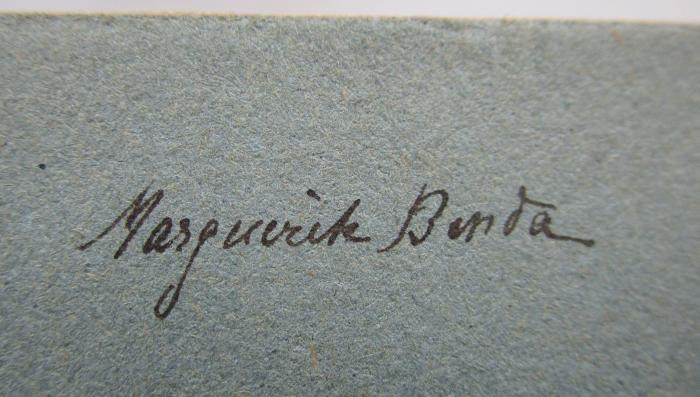 Marguerite Benda